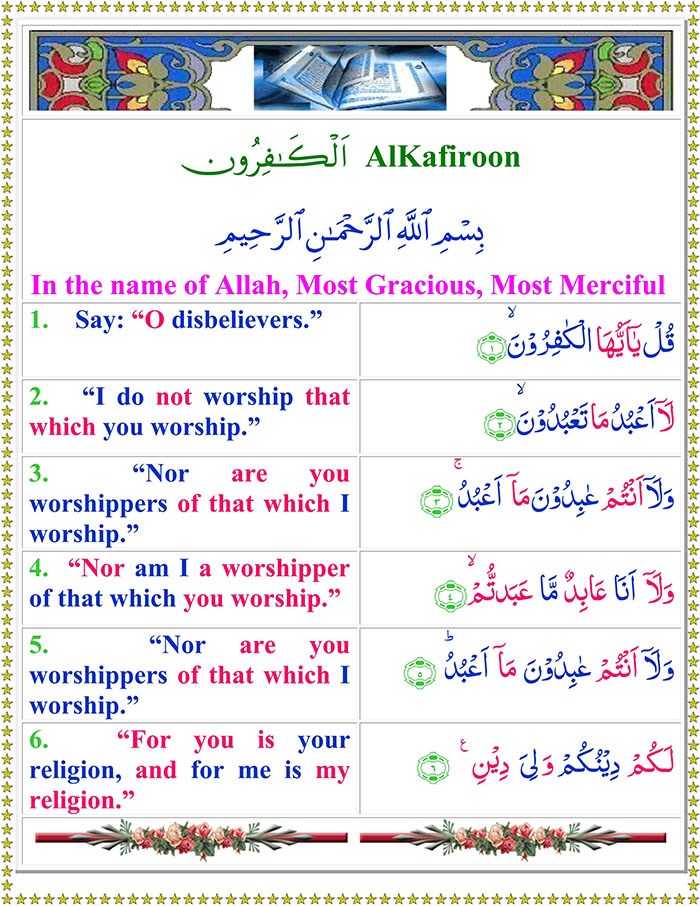 اَلْكَـٰفِرُون AlKafiroon
بِسْمِ ٱللَّهِ ٱلرَّحْمَـٰنِ ٱلرَّحِيمِ
In the name of Allah, Most Gracious, Most Merciful
1. Say: “O disbelievers.”
قُلْ يٰٓاَيُّهَا الْكٰفِرُوْنَ ۙ ١
2. “I do not worship that
which you worship.”
لَآ اَعْبُدُ مَا تَعْبُدُوْنَ ۙ ٢
3. “Nor are you
worshippers of that which I
worship.”
وَلَآ اَنْتُمْ عٰبِدُوْنَ مَآ اَعْبُدُ ۚ ٣
4. “Nor am I a worshipper
of that which you worship.”
وَلَآ اَنَا عَابِدٌ مَّا عَبَدتُّمْ ۙ ٤
5. “Nor are you
worshippers of that which I
worship.”
وَلَآ اَنْتُمْ عٰبِدُوْنَ مَآ اَعْبُدُ ؕ ٥
6. “For you is your
religion, and for me is my
religion.”
لَكُمْ دِيْنُكُمْ وَلِىَ دِيْنِ ع ٦